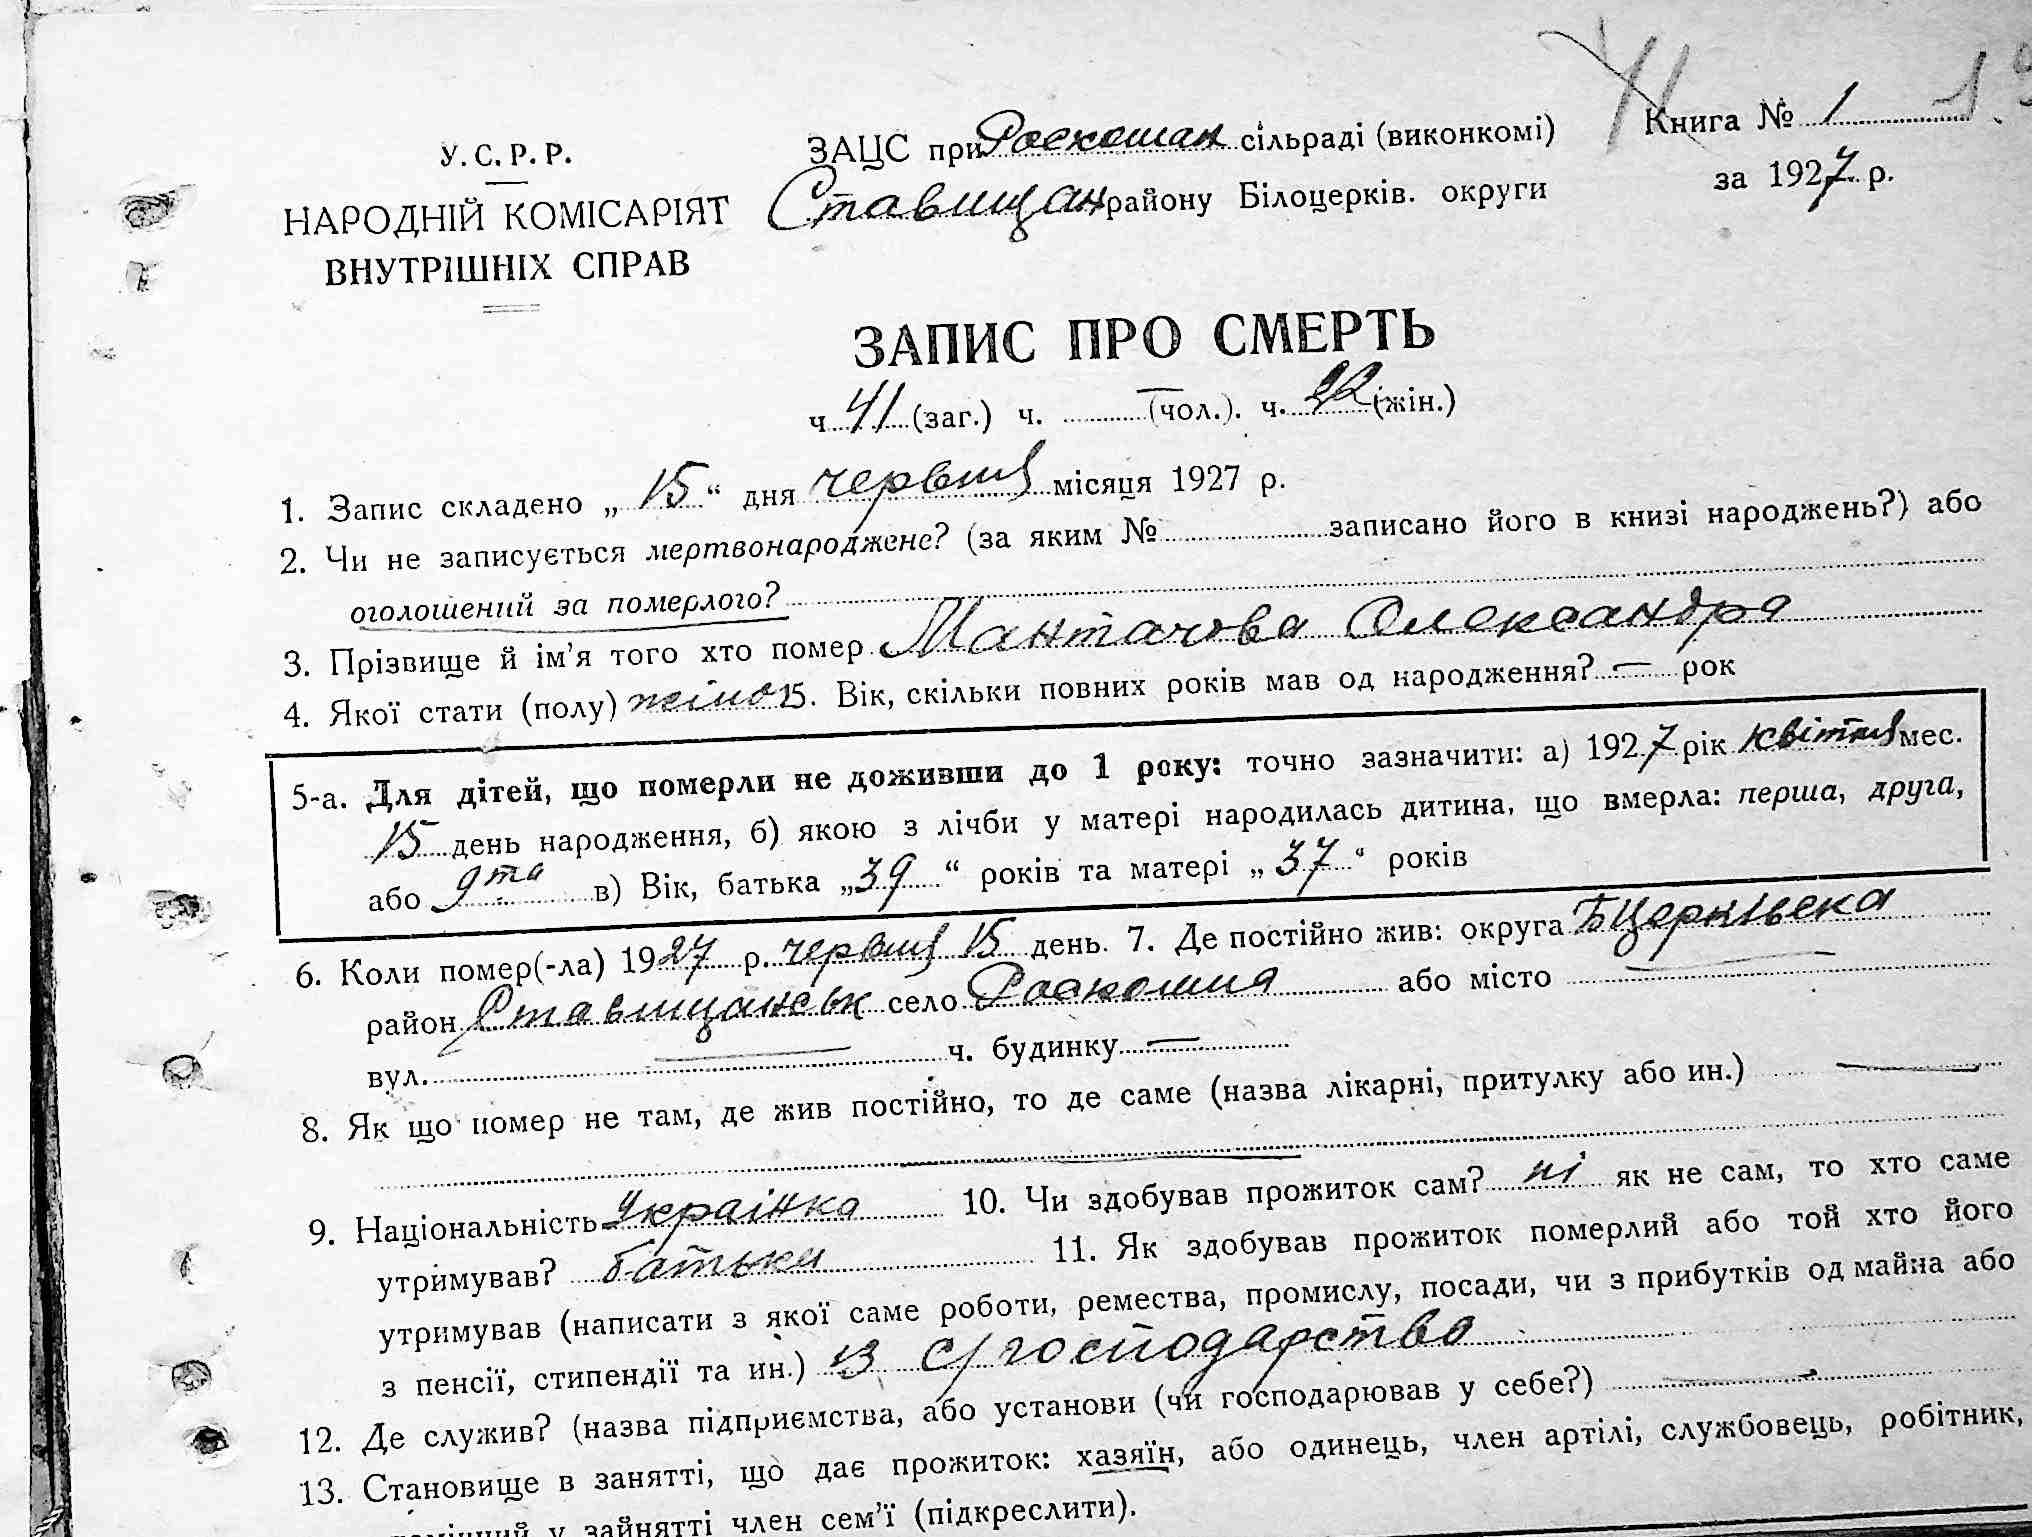 У. С. Р. Р.
НАРОДНІЙ КОМІСАРІЯТ
ВНУТРІШНІХ СПРАВ
ЗАЦС при Роскошан сільраді (виконкомі)
Ставищан району Білоцерків. округи
Книга № 1
за 1927 р.
41
ЗАПИС ПРО СМЕРТЬ
ч 41 (заг.) ч. — (чол.). ч. 22 (жін.)
1. Запис складено „ 15 “ дня червня місяця 1927 р.
2. Чи не записується мертвонароджене? (за яким № записано його в книзі народжень?) або
оголошений за померлого?
3. Прізвище й ім’я того хто помер Мантачова Олександра
4. Якої стати (полу) жіно 5. Вік, скільки повних років мав од народження? — рок
5-а. Для дітей, що померли не доживши до 1 року: точно зазначити: а) 1927 рік квітня мес.
15 день народження, б) якою з лічби у матері народилась дитина, що вмерла: перша, друга,
або 9та в) Вік, батька „ 39 “ років та матері „ 37 “ років
6. Коли помер(-ла) 1927 р. червня 15 день. 7. Де постійно жив: округа БЦерківська
район Ставищанськ село Роскошна або місто —
вул. — ч. будинку —
8. Як що помер не там, де жив постійно, то де саме (назва лікарні, притулку або ин.) —
9. Національність Українка 10. Чи здобував прожиток сам? ні як не сам, то хто саме
утримував? батьки 11. Як здобував прожиток померлий або той хто його
утримував (написати з якої саме роботи, ремества, промислу, посади, чи з прибутків од майна або
з пенсії, стипендії та ин.) із с/господарство
12. Де служив? (назва підприємства, або установи (чи господарював у себе?) —
13. Становище в занятті, що дає прожиток: хазяїн, або одинець, член артілі, службовець, робітник,
у зайнятті член сем’ї (підкреслити).